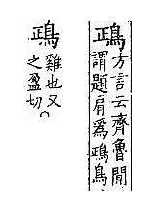 鴊方言云齊魯間
謂題肩爲鴊鳥
鴊雞也又
之盈切○